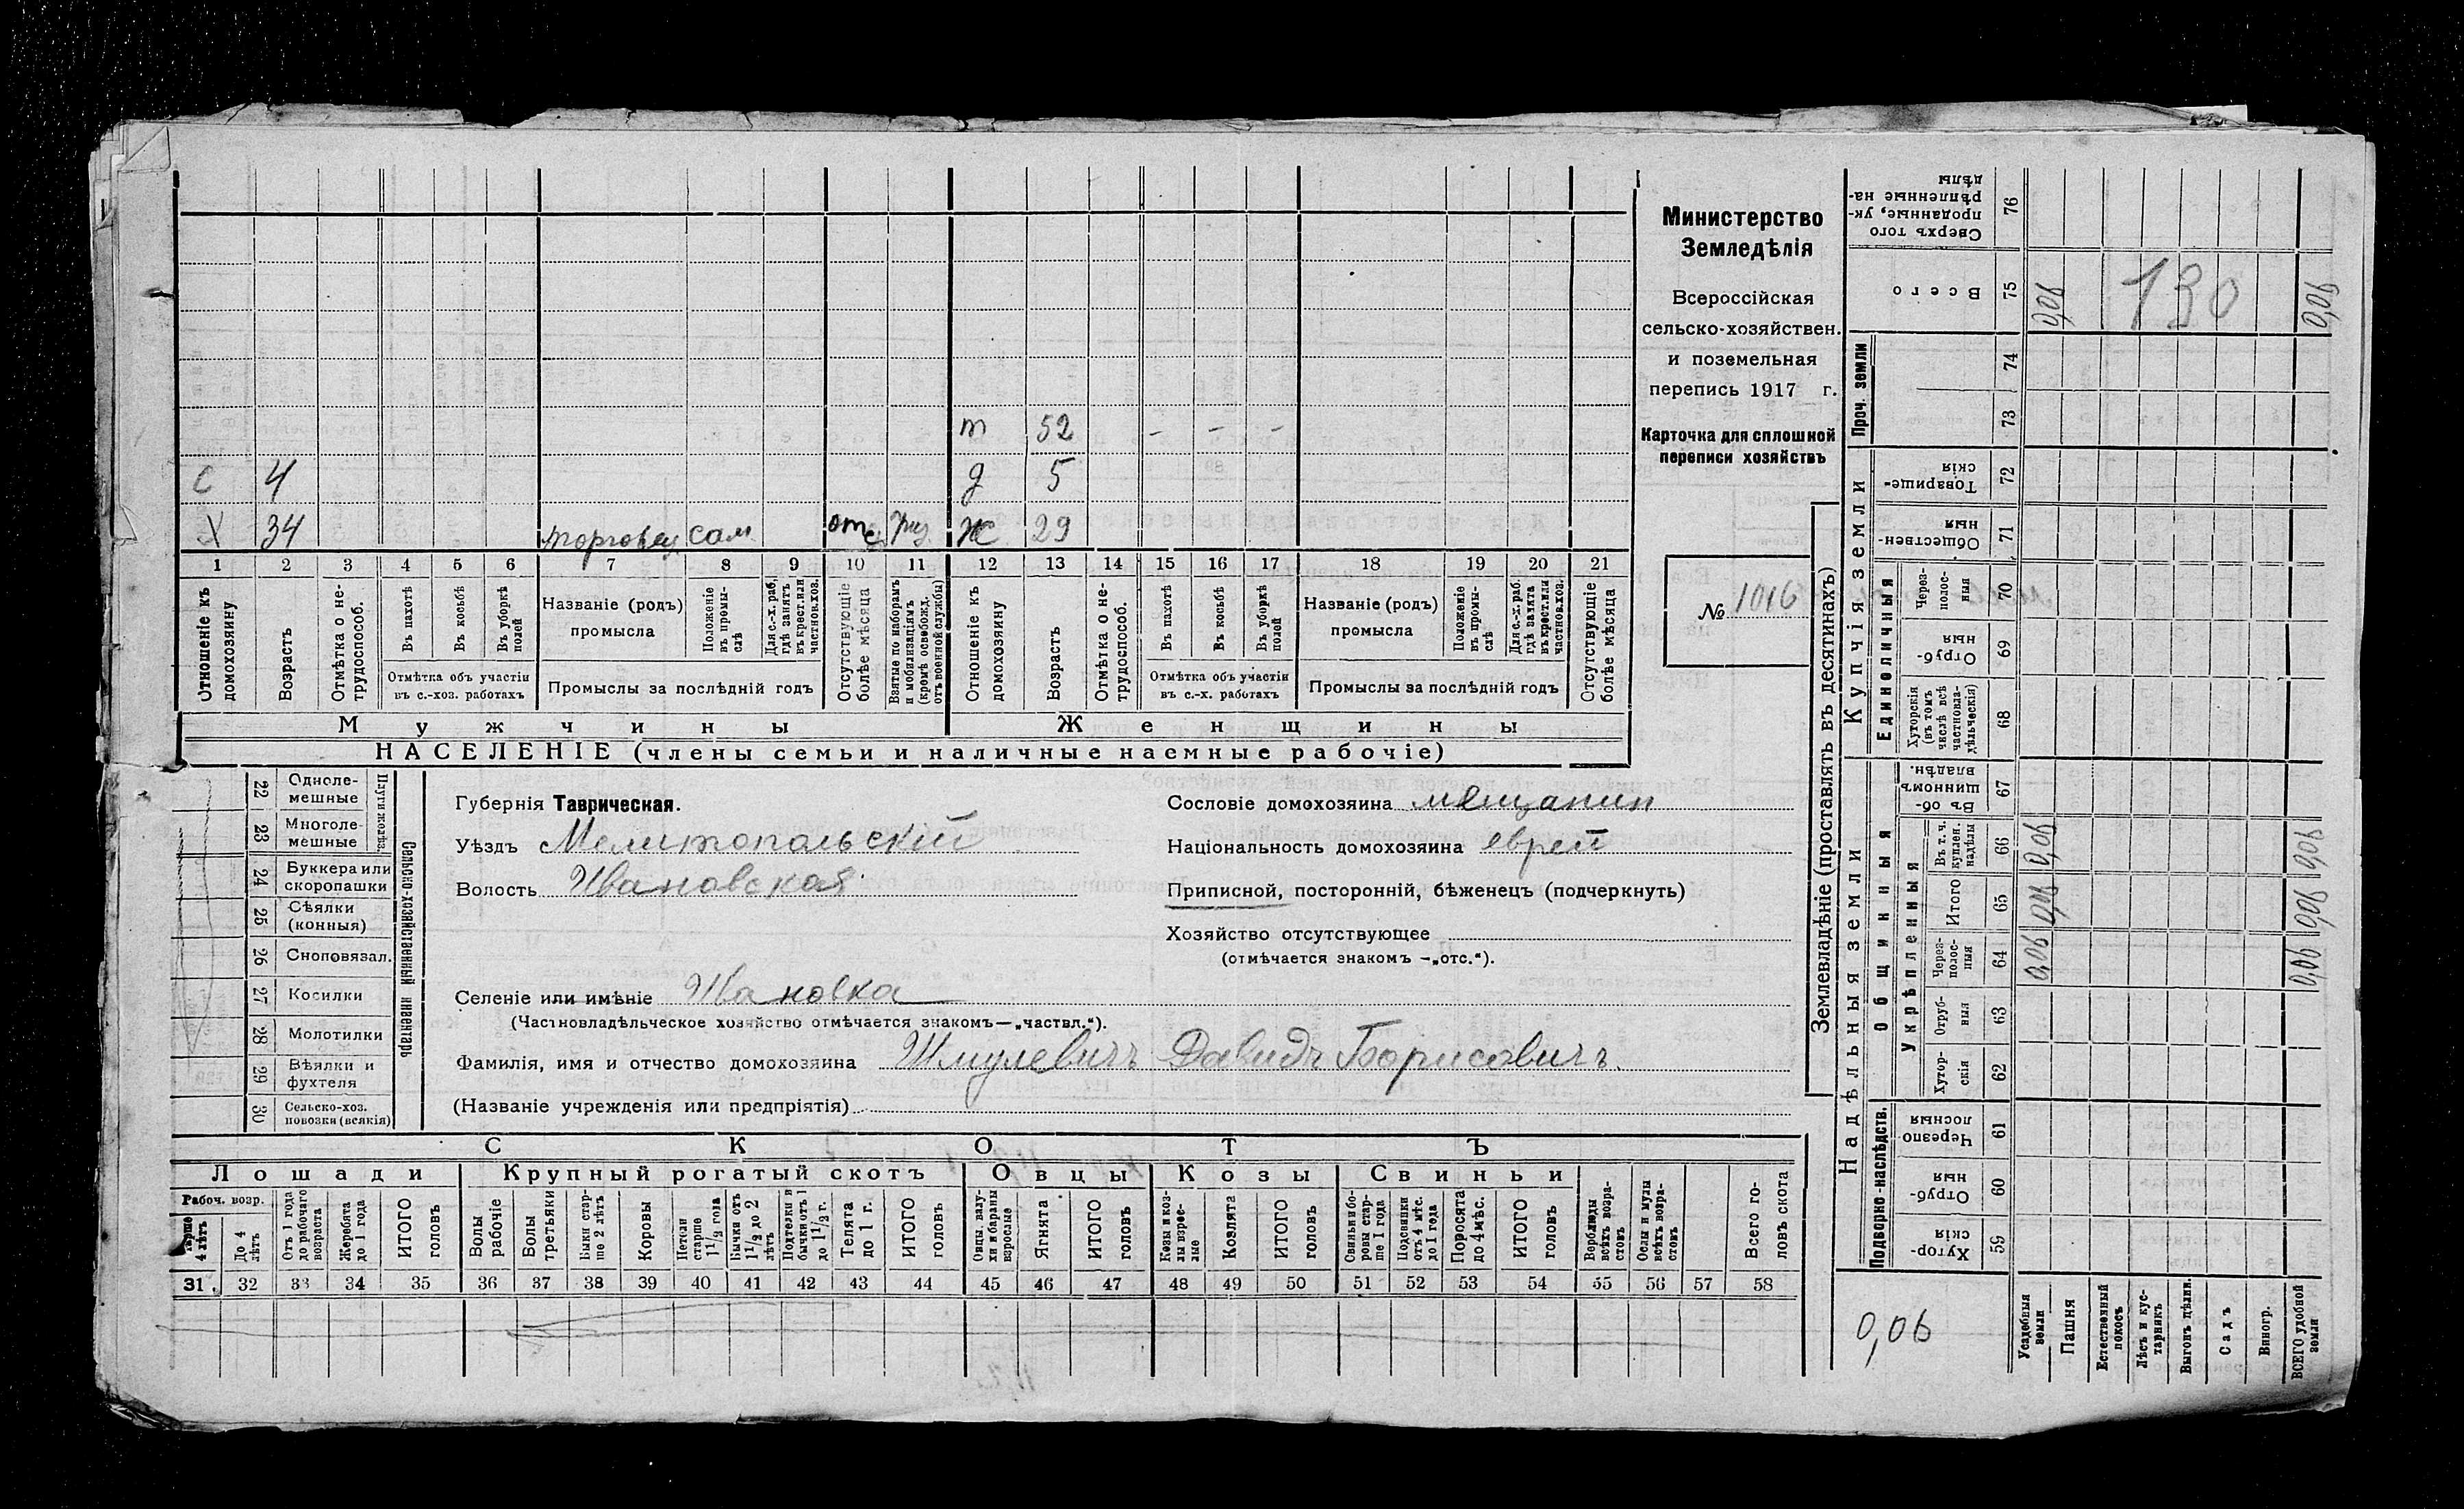 Министерство
Земледѣлія
Всероссійская
сельско-хозяйствен.
и поземельная
перепись 1917 г.
Карточка для сплошной
переписи хозяйствъ
№ 1016
т 52 - - -
с 4 д 5
х 34 торговец сам отс. ж 29
1 2 3 4 5 6 7 8 9 10 11 12 13 14 15 16 17 18 19 20 21
Отношеніе къ домохозяину
Возрастъ
Отмѣтка о не-трудоспособ.
Въ пахотѣ
Въ косьбѣ
Въ уборкѣ полей
Отмѣтка объ участіи
въ с.-хоз. работахъ
Названіе (родъ)
промысла
Положеніе въ промы-слѣ
Для с.-х. раб, гдѣ занятъ въ крест. или частнов. хоз.
Промыслы за послѣдній годъ
Отсутствующіе болѣе мѣсяца
Взятые по наборамъ и мобилизаціямъ (кромѣ освобожд. отъ военной службы)
Отношеніе къ домохозяину
Возрастъ
Отмѣтка о не-трудоспособ.
Въ пахотѣ
Въ косьбѣ
Въ уборкѣ полей
Отмѣтка объ участіи
въ с.-х. работахъ
Названіе (родъ)
промысла
Положеніе въ промы-слѣ
Для с.-х. раб. гдѣ занята въ крест. или частнов. хоз.
Промыслы за послѣдній годъ
Отсутствующіе болѣе мѣсяца
Мужчины Женщины
НАСЕЛЕНІЕ (члены семьи и наличные наемные рабочіе)
Сельско-хозяйственный инвентарь
22 Одноле-мешные
23 Многоле-мешные
24 Буккера или скоропашки
25 Сѣялки (конныя)
26 Сноповязал.
27 Косилки
28 Молотилки
29 Вѣялки и фухтеля
30 Сельско-хоз. повозки (всякія)
Губернія Таврическая.
Уѣздъ Мелитопольскій
Волость Ивановская
Сословіе домохозяина мѣщанин
Національность домохозяина еврей
Приписной, посторонній, бѣженец (подчеркнуть)
Хозяйство отсутствующее
(отмѣчается знакомъ —„отс.“).
Селеніе или имѣніе Ивановка
(Частновладѣльческое хозяйство отмѣчается знакомъ—„частвл.“).
Фамилія, имя и отчество домохозяина Шмулевичъ Давидъ Борисовичъ.
(Названіе учрежденія или предпріятія)
СКОТЪ
Лошади Крупный рогатый скотъ Овцы Козы Свиньи
Рабоч. возр.
До 4 лѣтъ
Отъ 1 года до рабочаго возраста
Жеребята до 1 года
ИТОГО головъ
Волы рабочіе
Волы третьяки
Быки стар-ше 2 лѣтъ
Коровы
Нетели старше 1 1/2 года
Бычки отъ 1 1/2 до 2 лѣтъ
Подтелки и бычки отъ 1 до 1 1/2 г.
Телята до 1 г.
ИТОГО головъ
Овцы, валу-хи и бараны взрослые
Ягнята
ИТОГО головъ
Козы и коз-лы взрос-лые
Козлята
ИТОГО головъ
Свиньи и бо-ровы стар-ше 1 года
Подсвинки отъ 4 мѣс. до 1 года
Поросята до 4 мѣс.
ИТОГО головъ
Верблюды всѣхъ возра-стовъ
Ослы и мулы всѣхъ возра-стовъ
Всего го-ловъ скота
31 32 33 34 35 36 37 38 39 40 41 42 43 44 45 46 47 48 49 50 51 52 53 54 55 56 57 58
Землевладѣніе (проставлять въ десятинахъ)
Сверхъ того проданные, ук-рѣпленные на-дѣлы 76
Всего 75 0,06 130 0,06
Проч. земли
74
73
Купчія земли
Товарище-скія 72
Обществен-ныя 71
Единоличныя
Через-полос-ныя 70
Отруб-ныя 69
Хуторскія (въ томъ числѣ всѣ частновла-дѣльческія) 68
Надѣльныя земли
Общинныя
Въ об-щинномъ владѣн. 67
Укрѣпленныя
Въ т. ч. куплен. надѣлы 66 0,06 0,06
Итого 65 0,06 0,06
Через-полос-ныя 64 0,06 0,06
Отруб-ныя 63
Хутор-скія 62
Подворно-наслѣдств.
Черезпо-лосныя 61
Отруб-ныя 60
Хутор-скія 59
0,06
Усадебныя земли
Пашня
Естественный покосъ
Лѣсъ и кус-тарникъ
Выгонъ цѣлин.
Садъ
Виногр.
ВСЕГО удобной земли